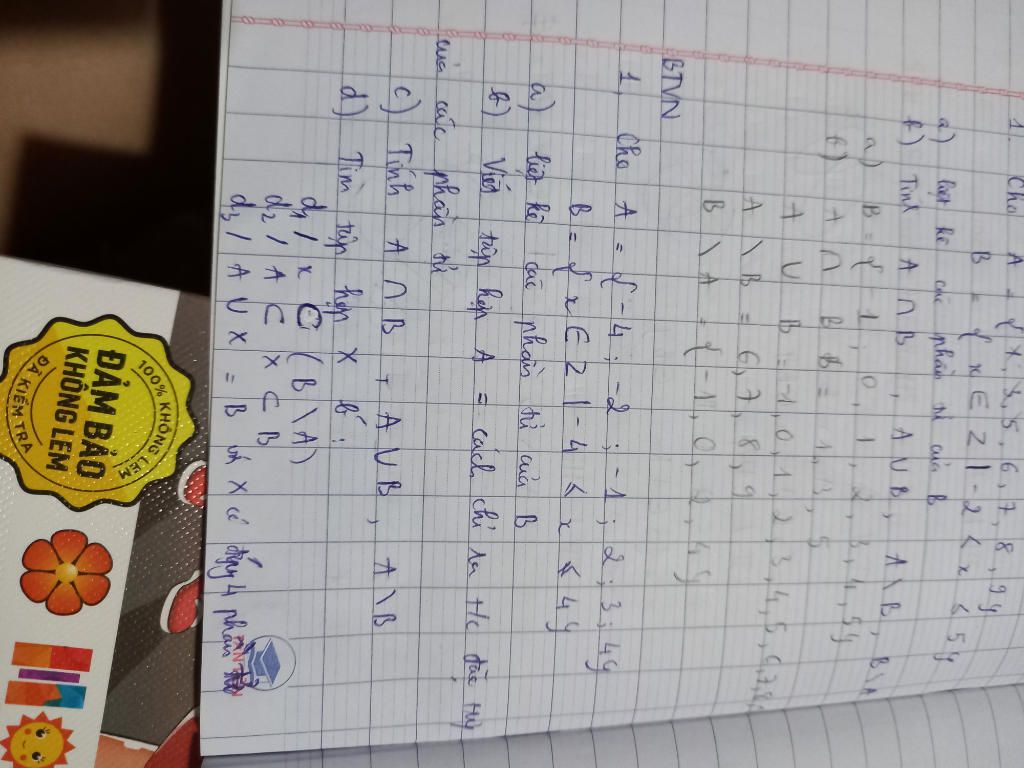 1. Cho A = { x ; 3, 5, 6, 7, 8, 9}
B = { x ∈ Z | -2 < x ≤ 5}
a) liệt kê các phần tử của B
b) Tính A ∩ B , A ∪ B, A \ B, B \ A
a) B = { -1 ; 0 , 1 , 2 , 3 , 4 , 5}
b) A ∩ B = 1, 3, 5
A ∪ B = -1, 0, 1, 2, 3, 4, 5, 6, 7, 8,
A \ B = 6, 7, 8, 9
B \ A = { -1, 0, 2, 4}
BTVN
1, Cho A = { -4 ; -2 ; -1 ; 2 ; 3 ; 4}
B = { x ∈ Z | -4 < x ≤ 4}
a) liệt kê các phần tử của B
b) Viết tập hợp A = cách chỉ ra t/c đặc
của các phần tử
c) Tính A ∩ B , A ∪ B , A \ B
d) Tìm tập hợp x b :
d1 / x ⊂ ( B \ A )
d2 / A ⊂ x ⊂ B
d3 / A ∪ x = B và x có 4 phần tử
100% KHÔNG LEM
ĐẢM BẢO
KHÔNG LEM
ĐÃ KIỂM TRA